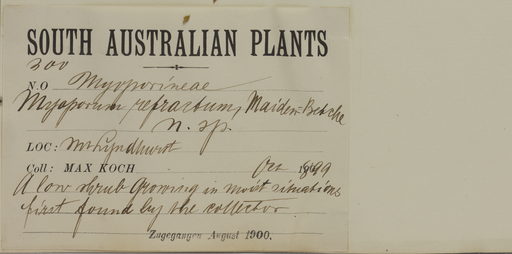 SOUTH AUSTRALIAN PLANTS
300
N.O Myoporineae
Myoporum refractum, Maiden Betche
n. sp.
LOC: Mt Lyndhurst
Coll: MAX KOCH Oct 1899
A low shrub growing in moist situations
first found by the collector
Zugegangen August 1900.